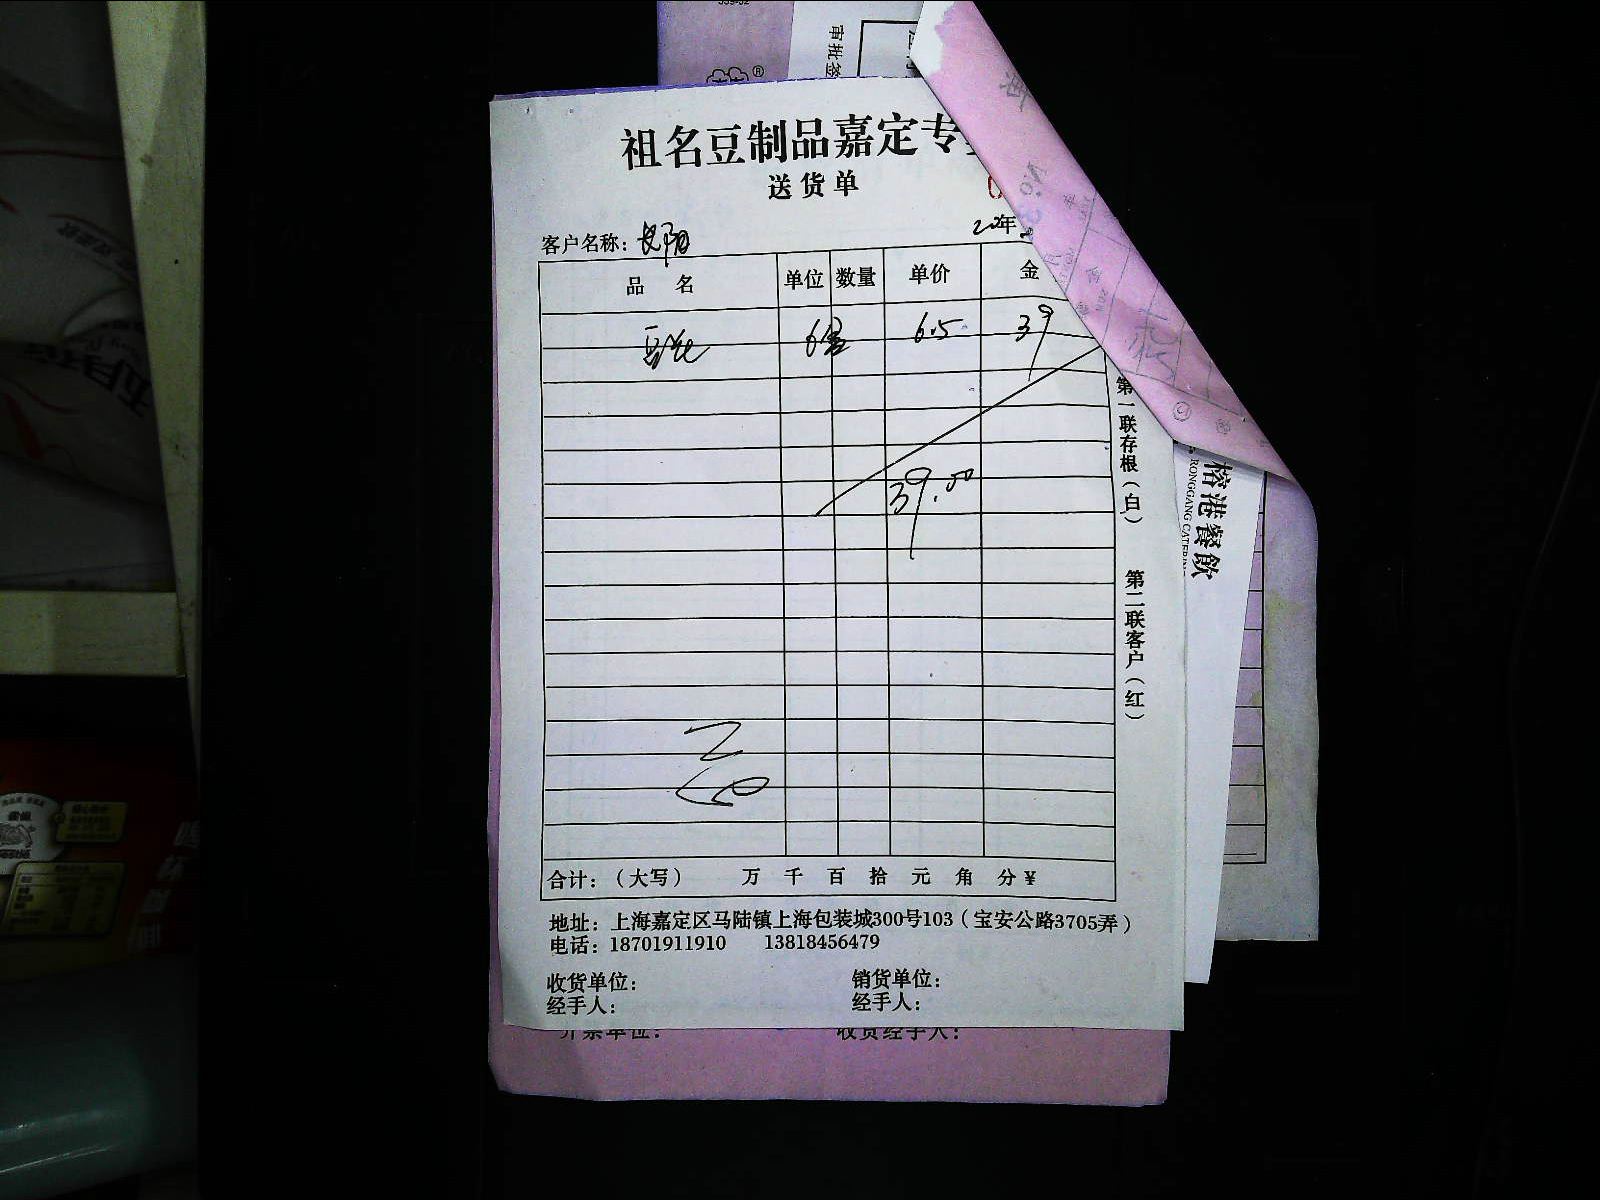 审批签
祖名豆制品嘉定专
送货单
客户名称：长阳
年
品名 单位 数量 单价 金
豆花 6盒 6.5 39
39.00
合计：（大写） 万 千 百 拾 元 角 分 ¥
地址：上海嘉定区马陆镇上海包装城300号103（宝安公路3705弄）
电话：18701911910 13818456479
收货单位： 销货单位：
经手人： 经手人：
开票单位： 收货经手人：
第一联存根（白） 第二联客户（红）
榕港餐飲
RONGGANG CATERIN